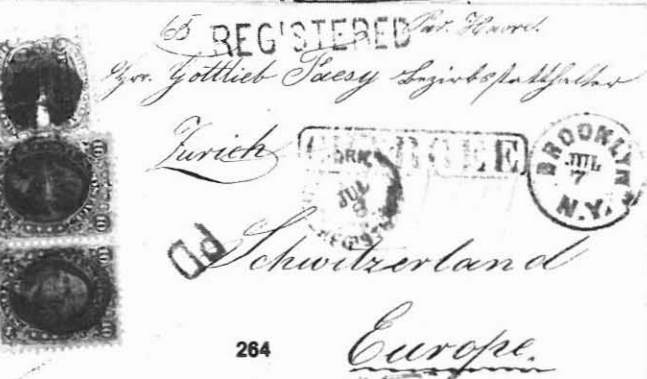 65 REG'STERED Par. Havre.
Hrr. Gottlieb Faesy Bezirksstatthalter
Zurich
CHARGÉE
BROOKLYN
JUL
7
N.Y.
JUL
8
PD
Schwitzerland
264
Europe.